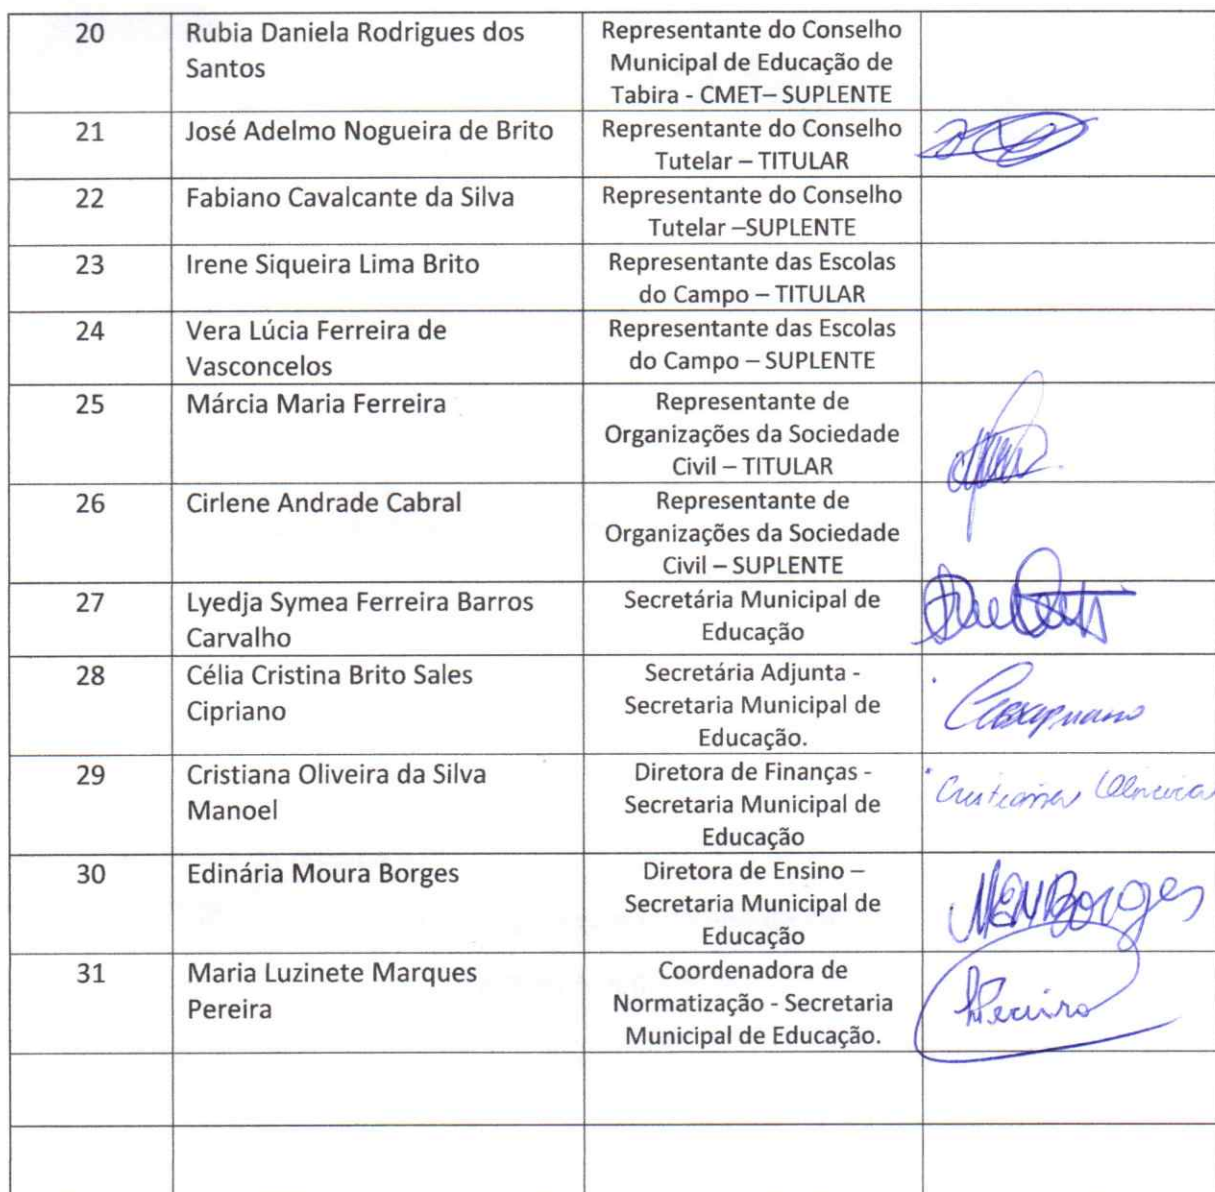 20
Rubia Daniela Rodrigues dos
Santos
Representante do Conselho
Municipal de Educação de
Tabira - CMET– SUPLENTE
21
José Adelmo Nogueira de Brito
Representante do Conselho
Tutelar – TITULAR
22
Fabiano Cavalcante da Silva
Representante do Conselho
Tutelar –SUPLENTE
23
Irene Siqueira Lima Brito
Representante das Escolas
do Campo – TITULAR
24
Vera Lúcia Ferreira de
Vasconcelos
Representante das Escolas
do Campo – SUPLENTE
25
Márcia Maria Ferreira
Representante de
Organizações da Sociedade
Civil – TITULAR
26
Cirlene Andrade Cabral
Representante de
Organizações da Sociedade
Civil – SUPLENTE
27
Lyedja Symea Ferreira Barros
Carvalho
Secretária Municipal de
Educação
28
Célia Cristina Brito Sales
Cipriano
Secretária Adjunta -
Secretaria Municipal de
Educação.
29
Cristiana Oliveira da Silva
Manoel
Diretora de Finanças -
Secretaria Municipal de
Educação
Cristiana Oliveira
30
Edinária Moura Borges
Diretora de Ensino –
Secretaria Municipal de
Educação
Borges
31
Maria Luzinete Marques
Pereira
Coordenadora de
Normatização - Secretaria
Municipal de Educação.